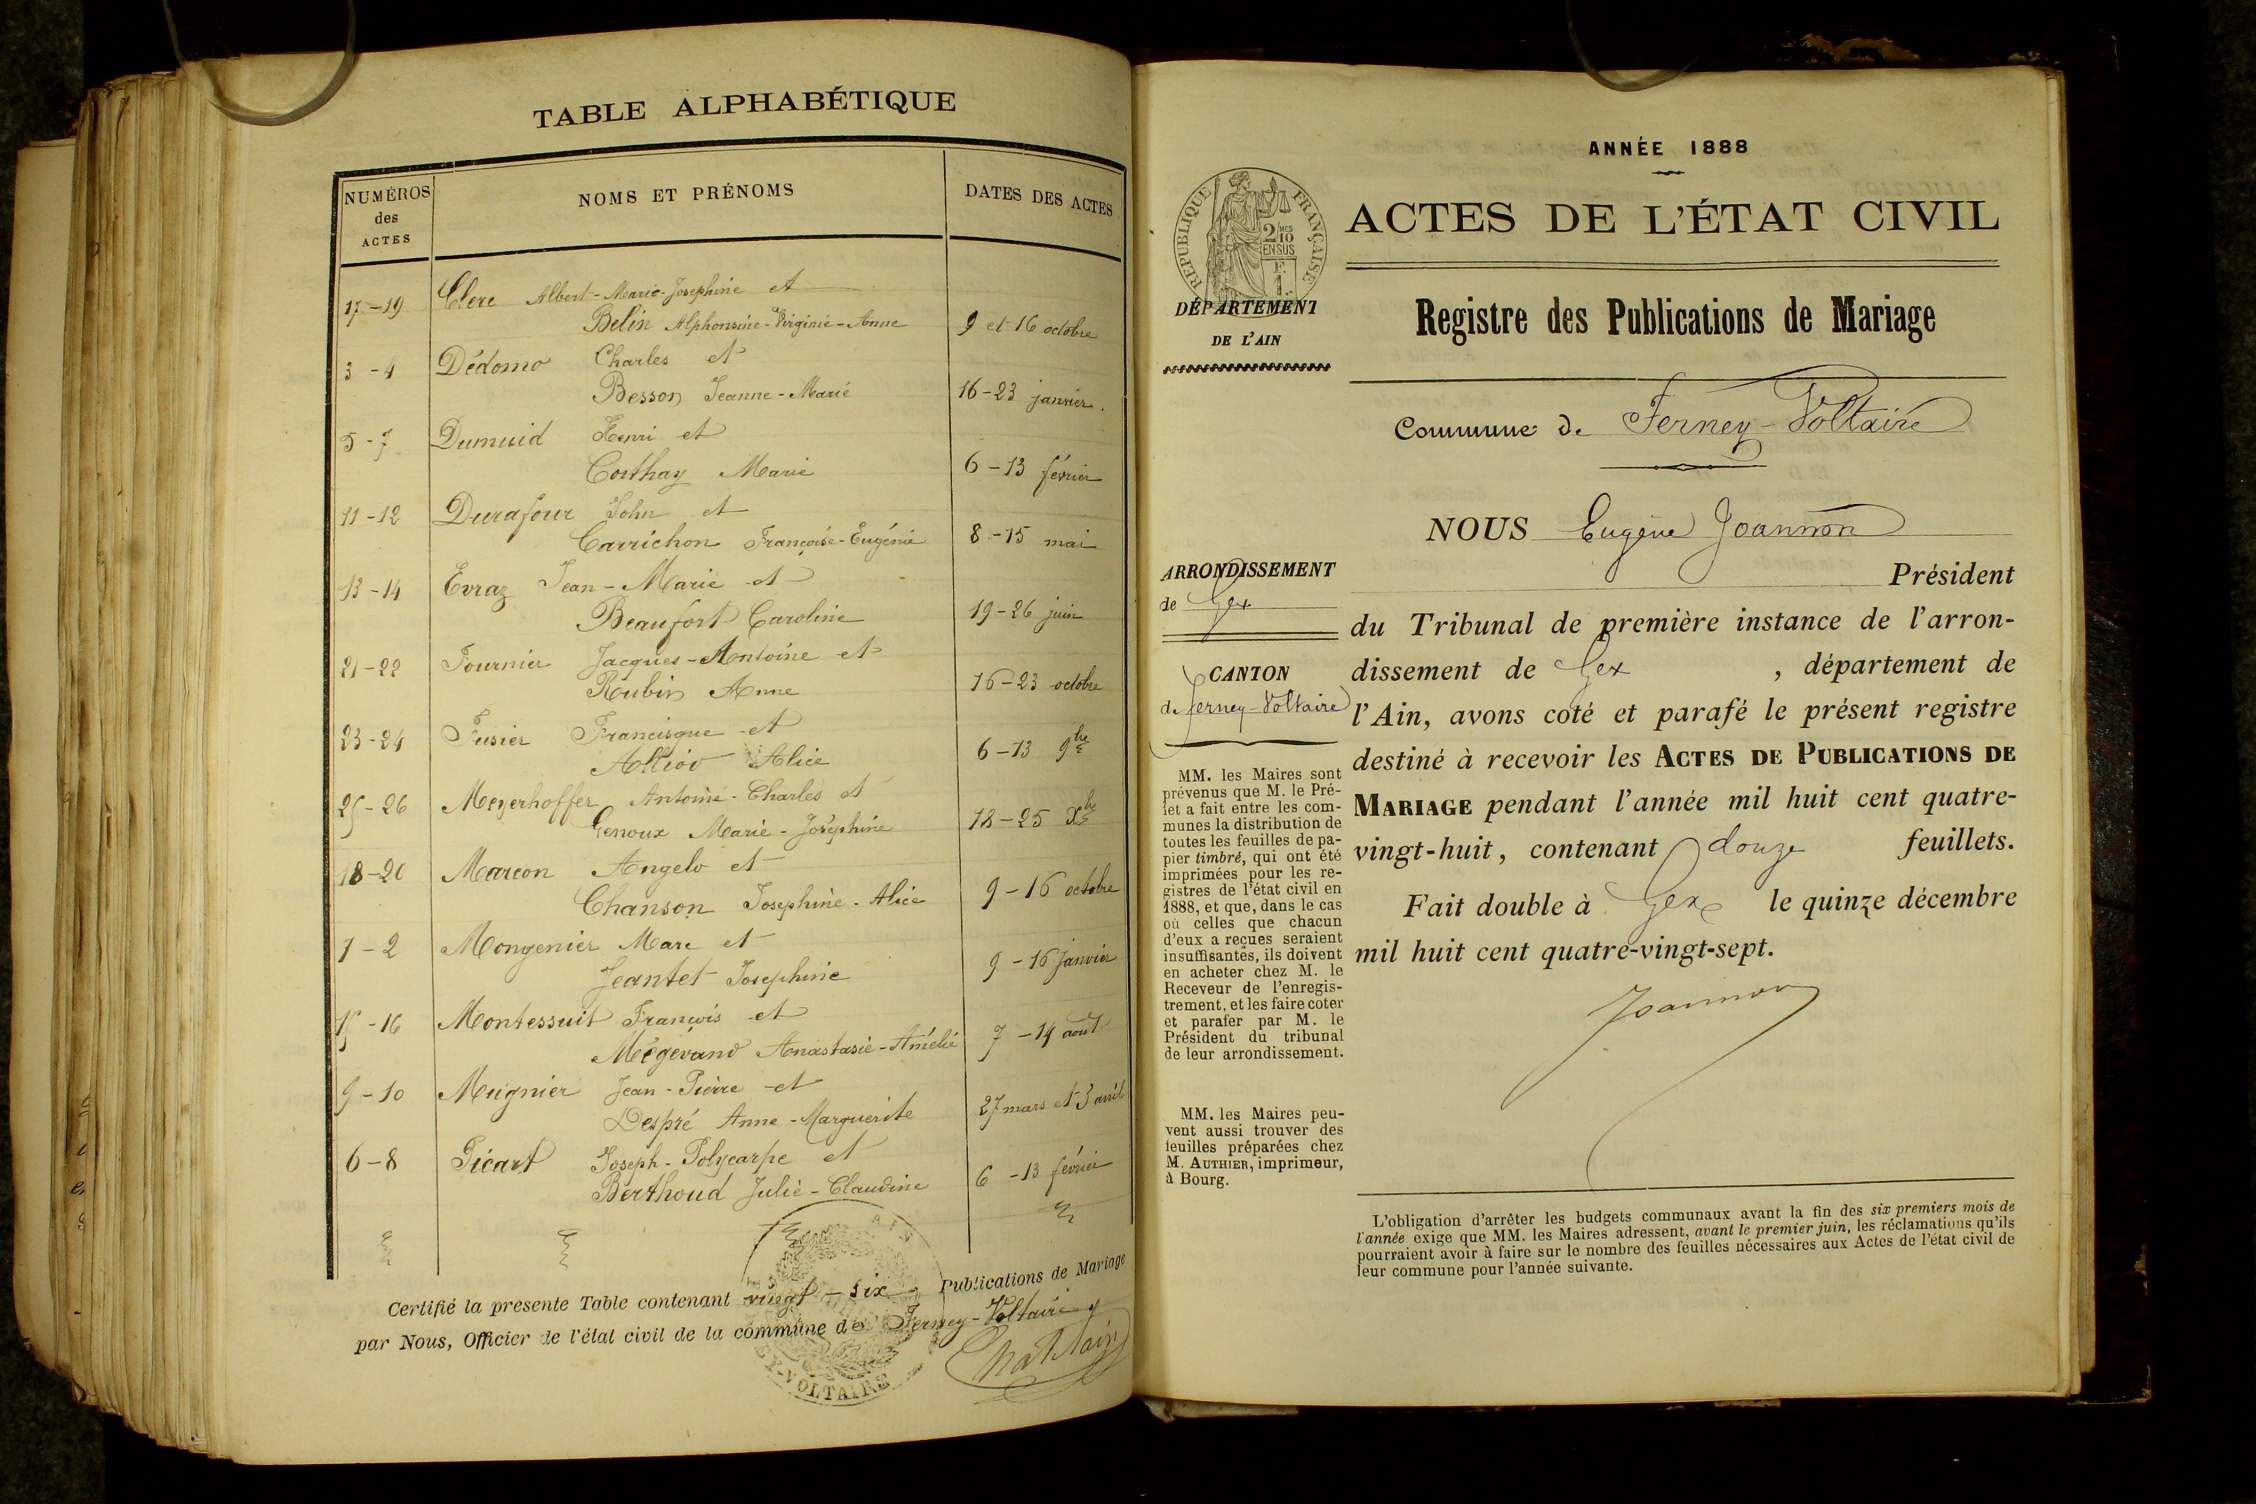 TABLE ALPHABÉTIQUE
NUMÉROS des ACTES
NOMS ET PRÉNOMS
DATES DES ACTES
17-19 Clerc Albert-Marie-Josephine et
Belin Alphonsine-Virginie-Anne 9 et 16 octobre
3-4 Dédomo Charles et
Besson Jeanne-Marie 16-23 janvier.
5-7 Dumuid Henri et
Corthay Marie 6-13 février
11-12 Durafour John et
Carrichon Françoise-Eugénie 8-15 mai
13-14 Evraz Jean-Marie et
Beaufort Caroline 19-26 juin
21-22 Fournier Jacques-Antoine et
Rubin Anne 16-23 octobre
23-24 Fusier Francisque et
Alliod Alice 6-13 9bre
25-26 Meyerhoffer Antoine-Charles et
Genoux Marie-Joséphine 18-25 Xbre
18-20 Marcon Angelo et
Chanson Josephine-Alice 9-16 octobre
1-2 Mongenier Marc et
Jeantet Josephine 9-16 janvier
15-16 Montessuit François et
Mégevand Anastasie-Amélie 7-14 août
9-10 Mugnier Jean-Pierre et
Despré Anne-Marguerite 27 mars et 3 avril
6-8 Picart Joseph-Polycarpe et
Berthoud Julie-Claudine 6-13 février
Certifié la presente Table contenant vingt-six Publications de Mariage
par Nous, Officier de l'état civil de la commune de Ferney-Voltaire
AIN
EY-VOLTAIRE
ANNÉE 1888
RÉPUBLIQUE FRANÇAISE
2/10 MES
EN SUS
F.
1.
ACTES DE L'ÉTAT CIVIL
DÉPARTEMENT
DE L'AIN
Registre des Publications de Mariage
Commune de Ferney-Voltaire
NOUS Eugène Joannon
Président
ARRONDISSEMENT
de Gex
CANTON
de Ferney-Voltaire
du Tribunal de première instance de l'arron-
dissement de Gex , département de
l'Ain, avons coté et parafé le présent registre
destiné à recevoir les ACTES DE PUBLICATIONS DE
MARIAGE pendant l'année mil huit cent quatre-
vingt-huit, contenant douze feuillets.
Fait double à Gex le quinze décembre
mil huit cent quatre-vingt-sept.
Joannon
MM. les Maires sont
prévenus que M. le Pré-
fet a fait entre les com-
munes la distribution de
toutes les feuilles de pa-
pier timbré, qui ont été
imprimées pour les re-
gistres de l'état civil en
1888, et que, dans le cas
où celles que chacun
d'eux a reçues seraient
insuffisantes, ils doivent
en acheter chez M. le
Receveur de l'enregis-
trement, et les faire coter
et parafer par M. le
Président du tribunal
de leur arrondissement.
MM. les Maires peu-
vent aussi trouver des
feuilles préparées chez
M. AUTHIER, imprimeur,
à Bourg.
L'obligation d'arrêter les budgets communaux avant la fin des six premiers mois de
l'année exige que MM. les Maires adressent, avant le premier juin, les réclamations qu'ils
pourraient avoir à faire sur le nombre des feuilles nécessaires aux Actes de l'état civil de
leur commune pour l'année suivante.